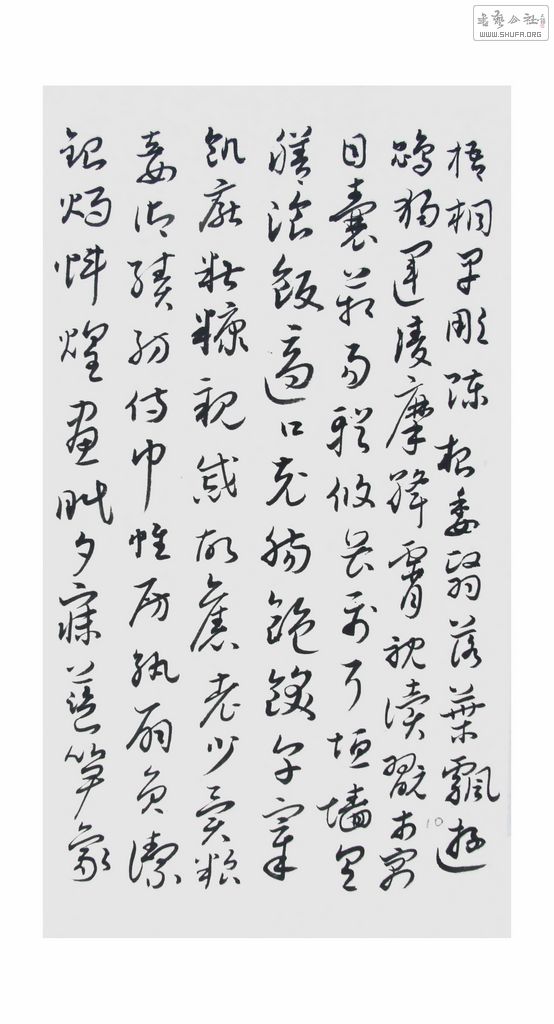 书艺公社
WWW.SHUFA.ORG
梧桐早彫陳根委翳落葉飄遊
鵾獨運凌摩絳霄耽讀翫市寓
目囊箱易輶攸畏屬耳垣墻具
膳飡飯適口充腸飽飫烹宰
飢厭糟糠親戚故舊老少異粮
妾御績紡侍巾帷房紈扇員潔
銀燭煒煌晝眠夕寐藍筍象
10